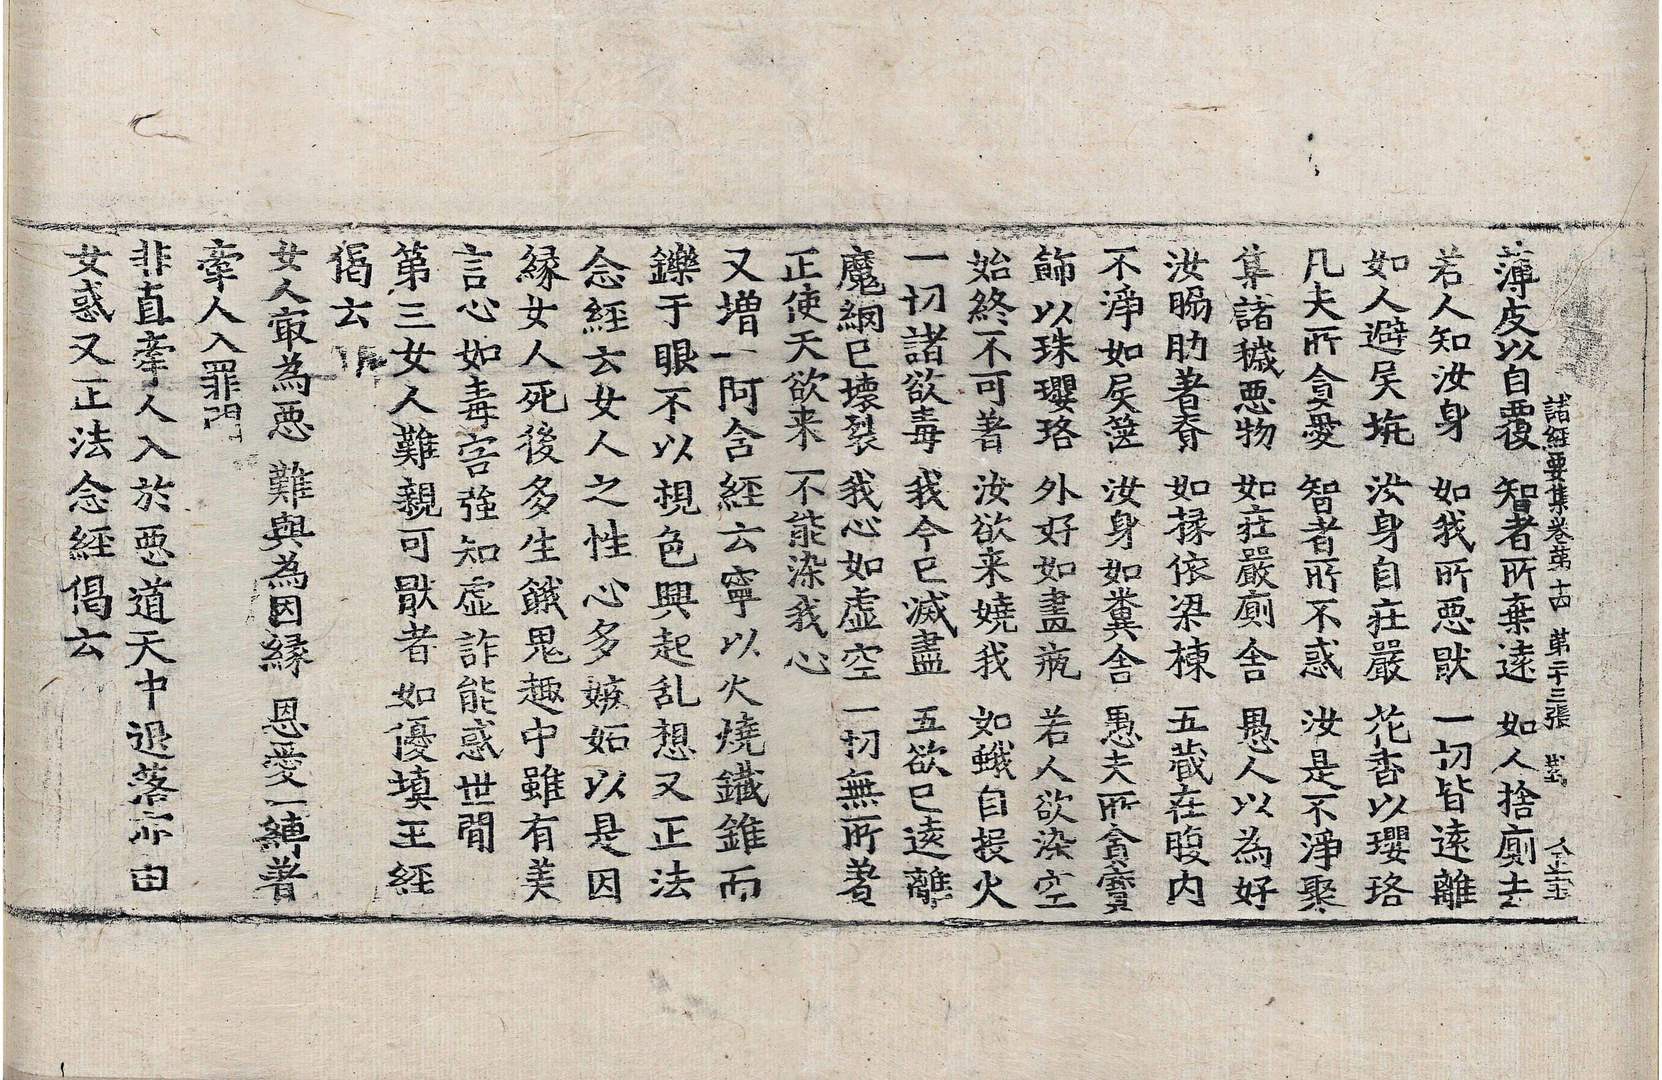 諸經要集卷第十四 第二十三張
薄皮以自覆 智者所棄遠 如人捨廁去
若人知汝身 如我所惡猒 一切皆遠離
如人避屎坑 汝身自莊嚴 花香以瓔珞
凡夫所貪愛 智者所不惑 汝是不淨聚
集諸穢惡物 如莊嚴廁舍 愚人以為好
汝脇肋著脊 如椽依梁棟 五藏在腹內
不淨如屎篋 汝身如糞舍 愚夫所貪寶
飾以珠瓔珞 外好如畫瓶 若人欲染空
始終不可著 汝欲来嬈我 如蛾自投火
一切諸欲毒 我今已滅盡 五欲已遠離
魔網已壞裂 我心如虛空 一切無所著
正使天欲来 不能染我心
又增一阿含經云寧以火燒鐵錐而
鑠于眼不以視色興起乱想又正法
念經云女人之性心多嫉妬以是因
緣女人死後多生餓鬼趣中雖有美
言心如毒害強知虛詐能惑世間
第三女人難親可猒者如優填王經
偈云
女人㝡為惡 難與為因緣 恩愛一縛著
牽人入罪門
非直牽人入於惡道天中退落亦由
女惑又正法念經偈云